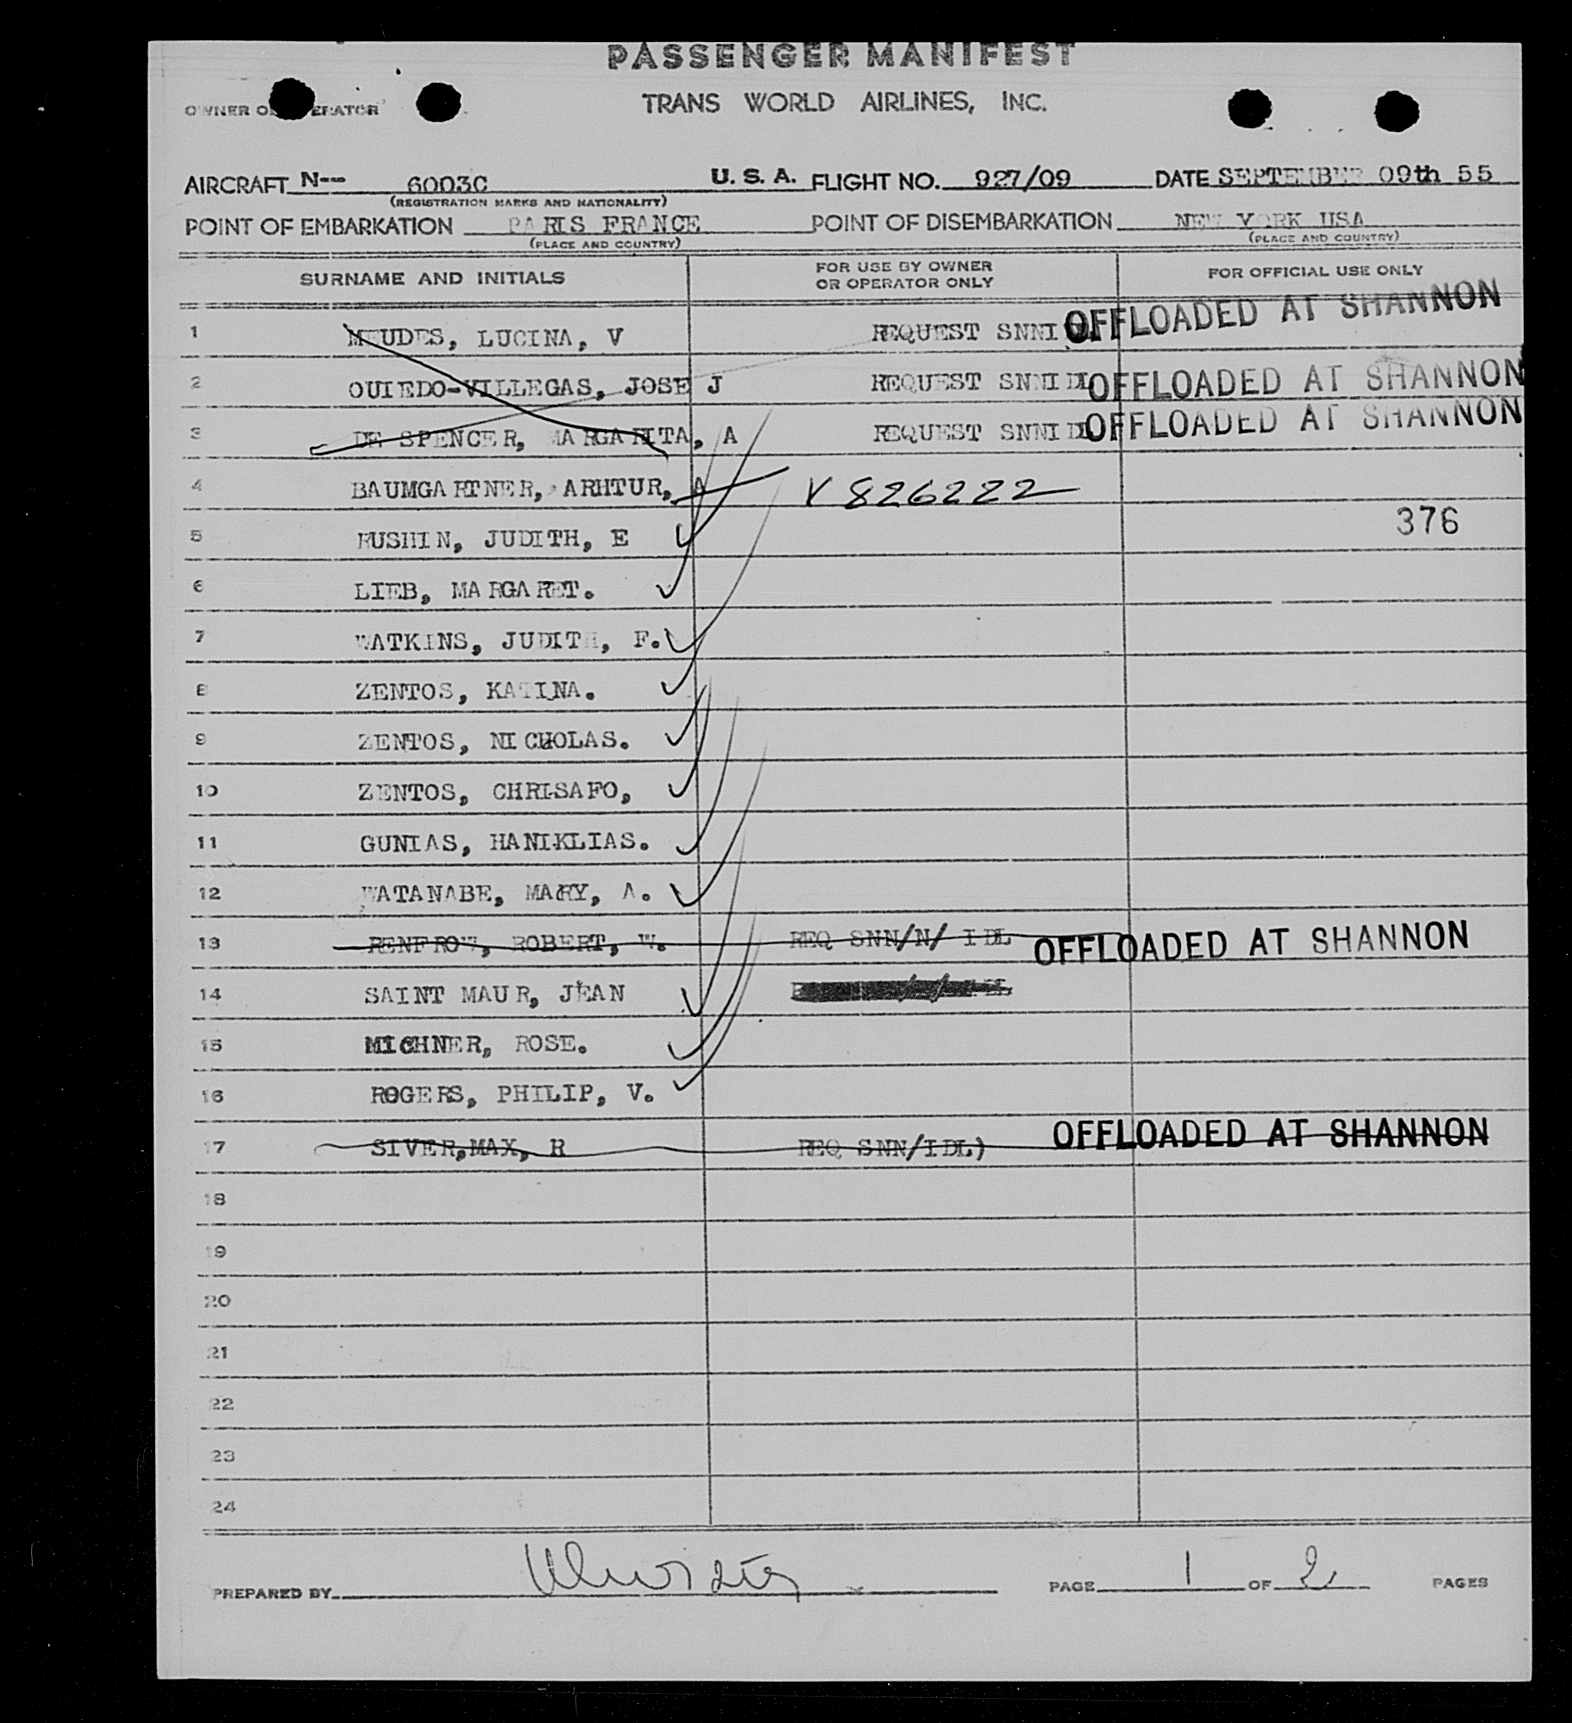 PASSENGER MANIFEST
OWNER O ERATOR
TRANS WORLD AIRLINES, INC.
AIRCRAFT N-- 6003C U. S. A. FLIGHT NO. 927/09 DATE SEPTEMBER 09th 55
(REGISTRATION MARKS AND NATIONALITY)
POINT OF EMBARKATION PARIS FRANCE POINT OF DISEMBARKATION NEW YORK USA
(PLACE AND COUNTRY) (PLACE AND COUNTRY)
SURNAME AND INITIALS FOR USE BY OWNER OR OPERATOR ONLY FOR OFFICIAL USE ONLY
1 MEUDES, LUCINA, V REQUEST SNNI OFFLOADED AT SHANNON
2 OUIEDO-VILLEGAS, JOSE J REQUEST SNNIDL OFFLOADED AT SHANNON
3 DE SPENCER, MARGARITA, A REQUEST SNNIDL OFFLOADED AT SHANNON
4 BAUMGARTNER, ARHTUR, A V 826222
5 RUSHIN, JUDITH, E 376
6 LIEB, MARGARET.
7 WATKINS, JUDITH, F.
8 ZENTOS, KATINA.
9 ZENTOS, NICHOLAS.
10 ZENTOS, CHRISAFO,
11 GUNIAS, HANIKLIAS.
12 WATANABE, MARY, A.
13 RENFROW, ROBERT, W. REQ SNN/N/ IDL OFFLOADED AT SHANNON
14 SAINT MAUR, JEAN
15 MICHNER, ROSE.
16 ROGERS, PHILIP, V.
17 SIVER,MAX, R REQ SNN/IDL) OFFLOADED AT SHANNON
18
19
20
21
22
23
24
PREPARED BY PAGE 1 OF 2 PAGES